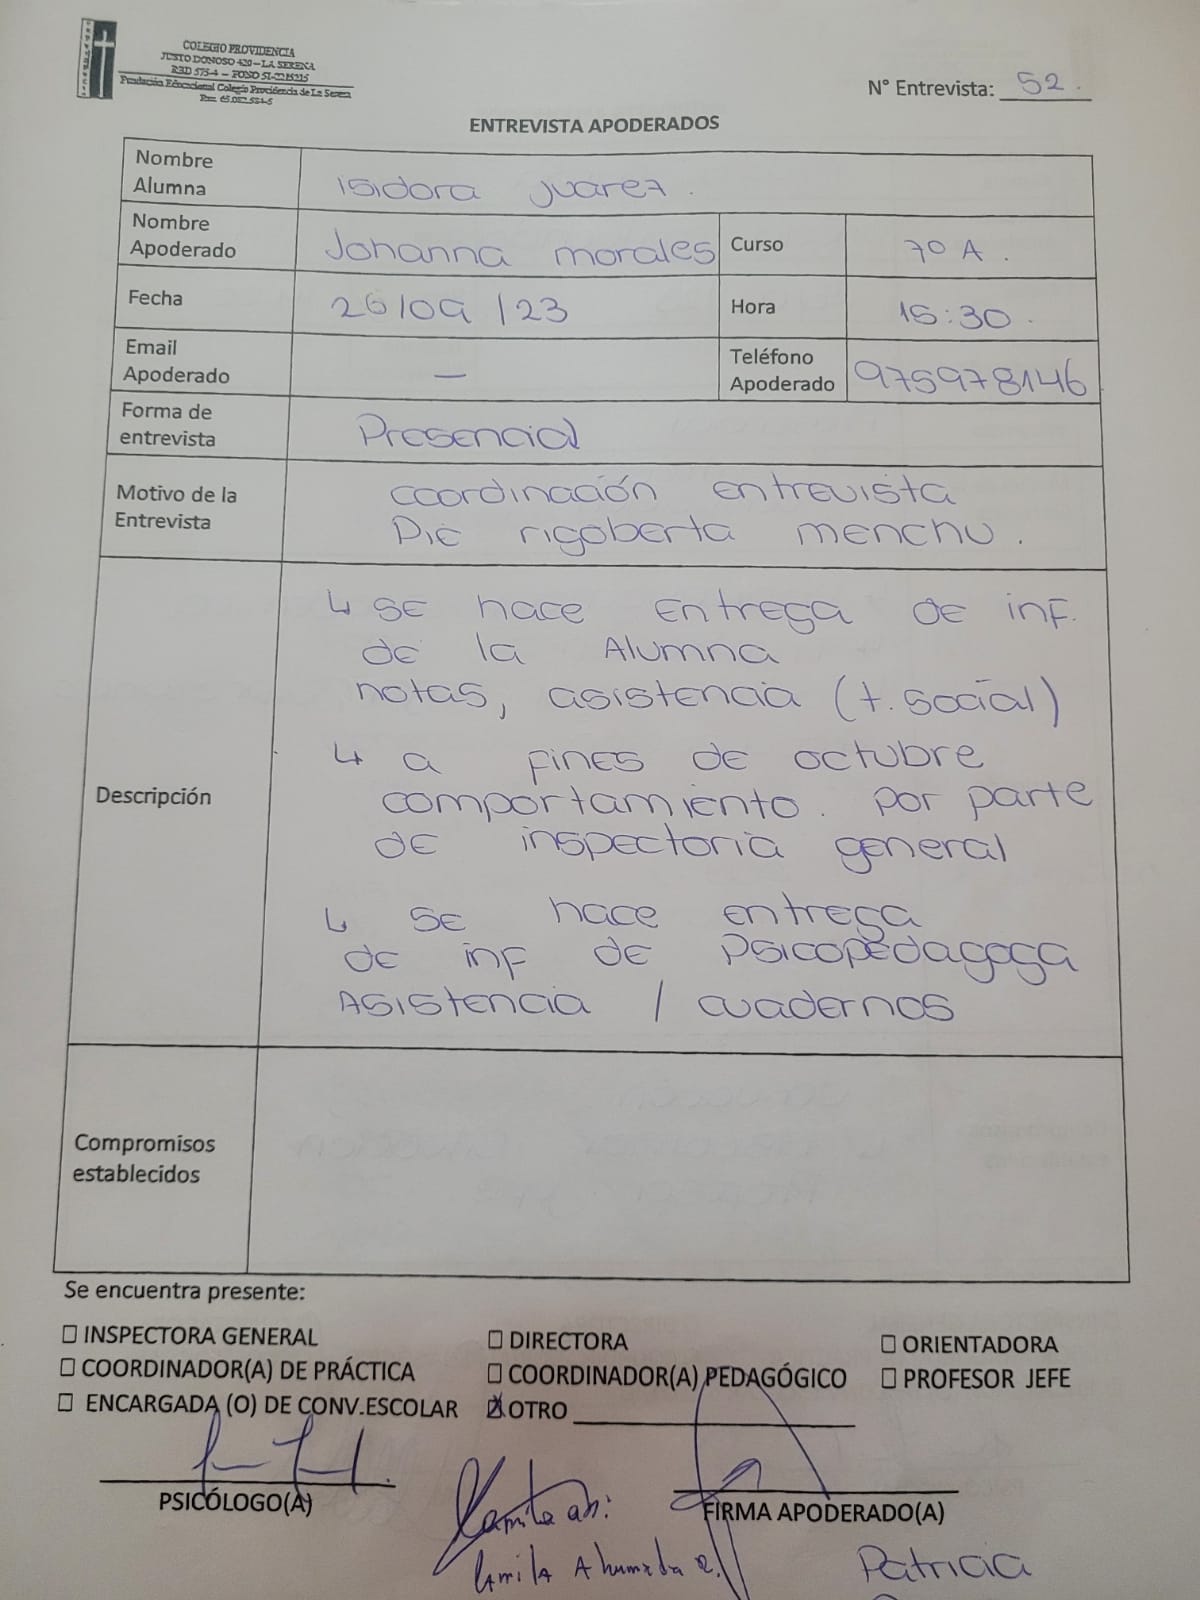 COLEGIO PROVIDENCIA
JUSTO DONOSO 420 – LA SERENA
RBD 575-4 – FONO 51-2215315
Fundación Educacional Colegio Providencia de La Serena
N° Entrevista: 52.
ENTREVISTA APODERADOS
Nombre Alumna
isidora juarez.
Nombre Apoderado
Johanna morales
Curso
7º A.
Fecha
26/09/23
Hora
15:30.
Email Apoderado
—
Teléfono Apoderado
975978146
Forma de entrevista
Presencial
Motivo de la Entrevista
coordinación entrevista
Pie rigoberta menchu.
Descripción
↳ se hace Entrega de inf.
de la Alumna
notas, asistencia (t. social)
↳ a fines de octubre
comportamiento. por parte
de inspectoria general
↳ se hace entrega
de inf de Psicopedagoga
Asistencia / cuadernos
Compromisos establecidos
Se encuentra presente:
☐ INSPECTORA GENERAL
☐ DIRECTORA
☐ ORIENTADORA
☐ COORDINADOR(A) DE PRÁCTICA
☐ COORDINADOR(A) PEDAGÓGICO
☐ PROFESOR JEFE
☐ ENCARGADA (O) DE CONV.ESCOLAR
☒ OTRO
PSICÓLOGO(A)
FIRMA APODERADO(A)
Camila Ahumada R.
Patricia